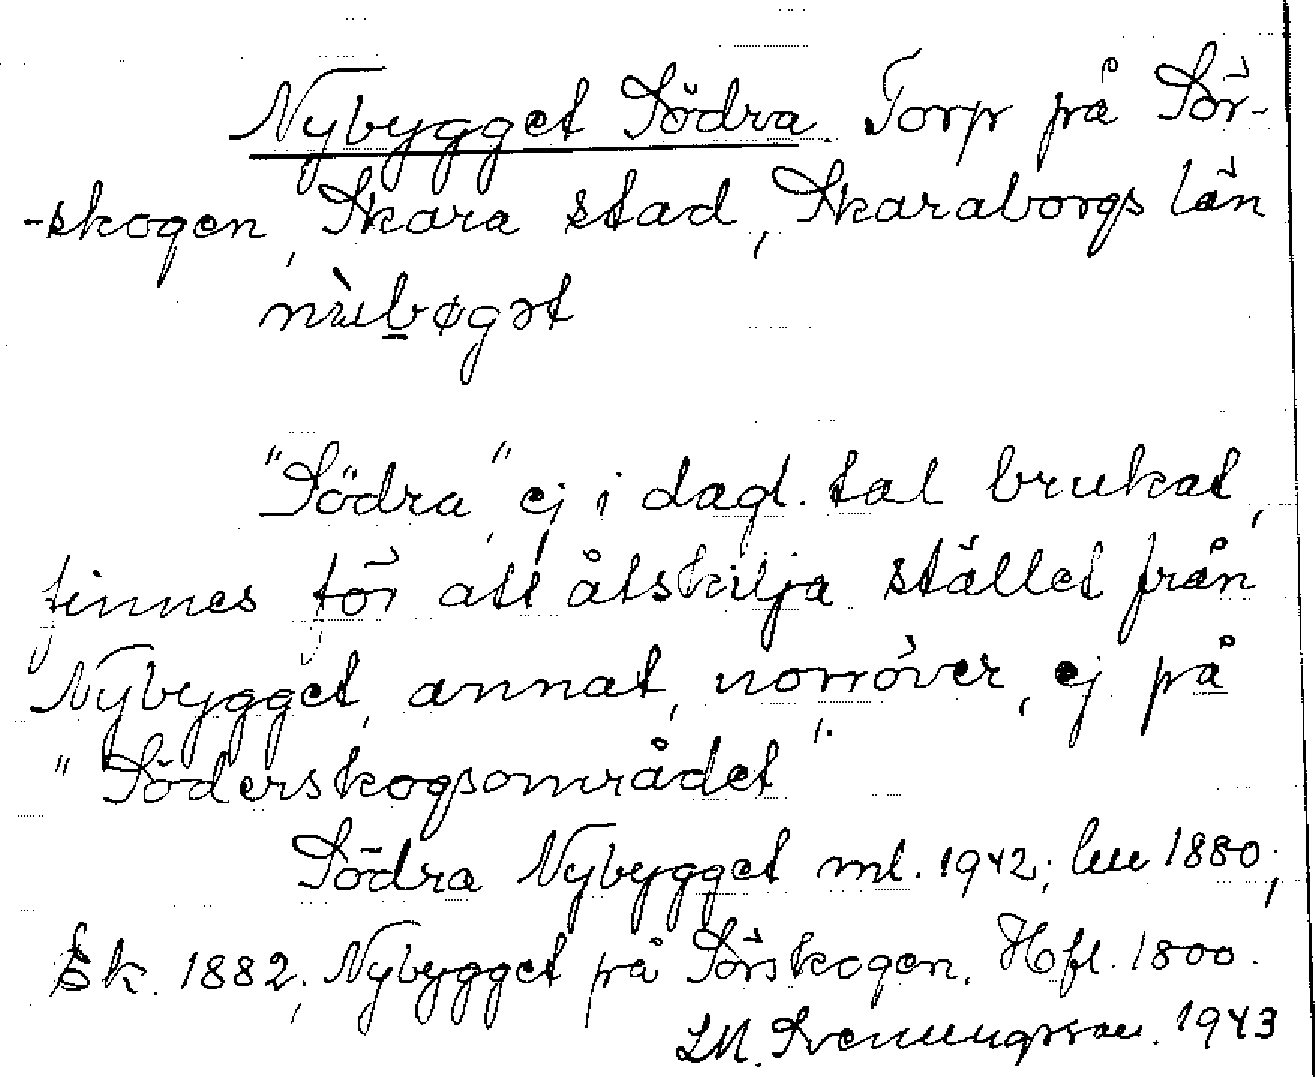 Nybygget Södra. Torp på Sör-
-skogen, Skara stad, Skaraborgs län
"Södra", ej i dagl. tal brukat,
finnes för att åtskilja stället från
Nybygget, annat, norröver, ej på
"Söderskogsområdet".
Södra Nybygget ml. 1942; 1880;
Ek. 1882; Nybygget på Sörskogen. Hfl. 1800.
1943